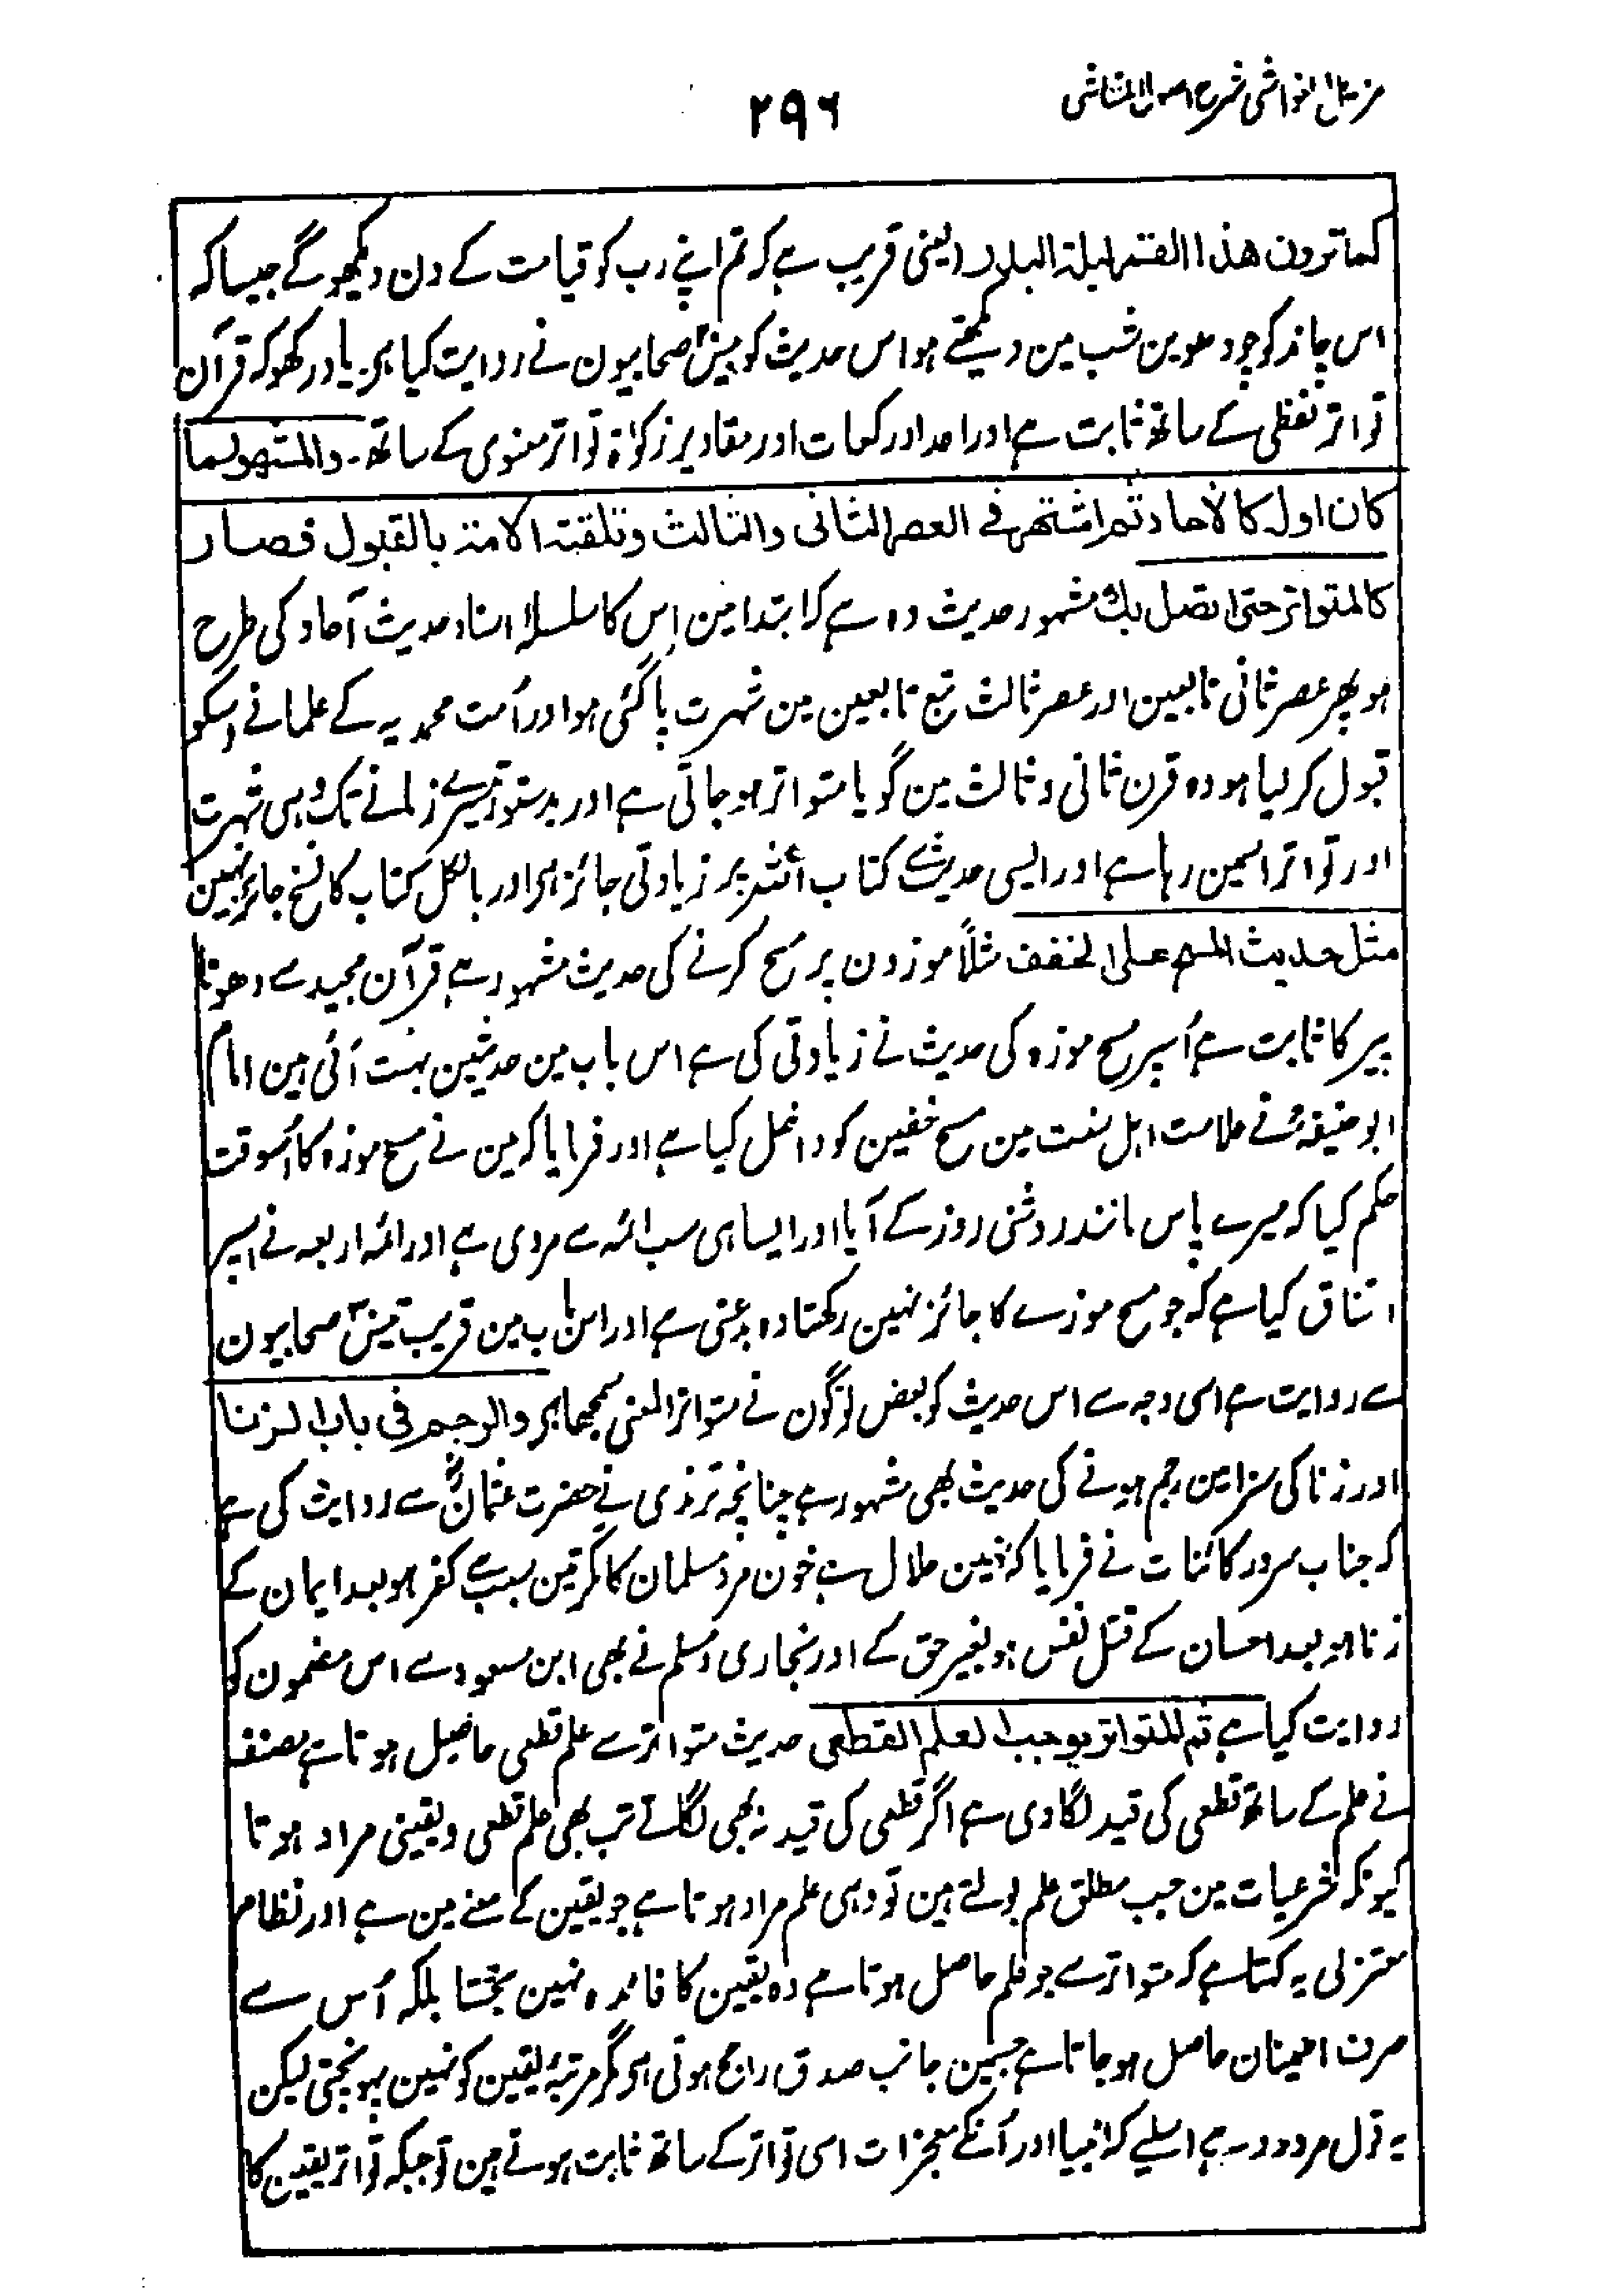 مزیل الغواشی شرح اصول الشاشی
۲۹۶
کما ترون هذا القمر لیلة البدر یعنی قریب ہے کہ تم اپنے رب کو قیامت کے دن دیکھو گے جیسا کہ
اس چاند کو چودھوین شب مین دیکھتے ہو اس حدیث کو بیس صحابیون نے روایت کیا ہی یاد رکھو کہ قرآن
تواتر لفظی کے ساتھ ثابت ہے اور اعداد رکعات اور مقادیر زکوٰة تواتر معنوی کے ساتھ۔ والمشهور ما
کان اوله کالاحاد ثم اشتهر فی العصر الثانی والثالث وتلقته الامة بالقبول فصار
کالمتواتر حتی اتصل بك مشہور حدیث وہ ہے کہ ابتدا مین اس کا سلسلۂ اسناد حدیث آحاد کی طرح
ہو پھر عصر ثانی تابعین اور عصر ثالث تبع تابعین مین شہرت پا گئی ہو اور اُمت محمدیہ کے علما نے اسکو
قبول کر لیا ہو وہ قرن ثانی و ثالث مین گویا متواتر ہو جاتی ہے اور بدستور تیسرے زمانے تک وہی شہرت
اور تواتر اسمین رہا ہے اور ایسی حدیث سے کتاب اللہ پر زیادتی جائز ہی اور بالکل کتاب کا نسخ جائز نہین
مثل حدیث المسح علی الخفف مثلاً موزون پر مسح کرنے کی حدیث مشہور ہے قرآن مجید سے دھونا
پیر کا ثابت ہے اُسپر مسح موزہ کی حدیث نے زیادتی کی ہے اس باب مین حدیثین بہت آئی ہین امام
ابو حنیفہؒ نے علامت اہل سنت مین مسح خفین کو داخل کیا ہے اور فرمایا کہ مین نے مسح موزہ کا اُسوقت
حکم کیا کہ میرے پاس مانند روشنی روز کے آیا اور ایسا ہی سب ائمہ سے مروی ہے اور ائمہ اربعہ نے اسپر
اتفاق کیا ہے کہ جو مسح موزے کا جائز نہین رکھتا وہ بدعتی ہے اور اس باب مین قریب تیس صحابیون
سے روایت ہے اسی وجہ سے اس حدیث کو بعض لوگون نے متواتر المعنی سمجھا ہی والرجم فی باب الزنا
اور زنا کی سزا مین رجم ہونے کی حدیث بھی مشہور ہے چنانچہ ترمذی نے حضرت عثمانؓ سے روایت کی ہے
کہ جناب سرور کائنات نے فرمایا کہ نہین حلال ہے خون مرد مسلمان کا مگر تین سبب سے کفر ہو بعد ایمان کے
زنا ہو بعد احسان کے قتل نفس ہو بغیر حق کے اور بخاری و مسلم نے بھی ابن مسعود سے اس مضمون کو
روایت کیا ہے ثم المتواتر یوجب العلم القطعی حدیث متواتر سے علم قطعی حاصل ہوتا ہے مصنف
نے علم کے ساتھ قطعی کی قید لگا دی ہے اگر قطعی کی قید نہ بھی لگاتے تب بھی علم قطعی و یقینی مراد ہوتا
کیونکہ شرعیات مین جب مطلق علم بولتے ہین تو وہی علم مراد ہوتا ہے جو یقین کے معنے مین ہے اور نظام
معتزلی یہ کہتا ہے کہ متواتر سے جو علم حاصل ہوتا ہے وہ یقین کا فائدہ نہین بخشتا بلکہ اُس سے
صرف اطمینان حاصل ہو جاتا ہے جسمین جانب صدق راجح ہوتی ہی مگر مرتبۂ یقین کو نہین پہونچتی لیکن
یہ قول مردود ہے اسلیے کہ انبیا اور اُنکے معجزات اسی تواتر کے ساتھ ثابت ہوتے ہین تو جبکہ تواتر یقین کا